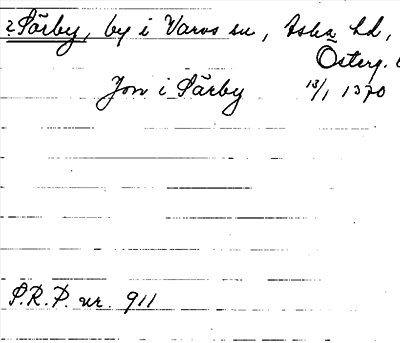 2 Särby, by i Varvs sn, Aska hd,
Österg.
Jon i Särby 13/1 1370
S.R.P. nr. 911